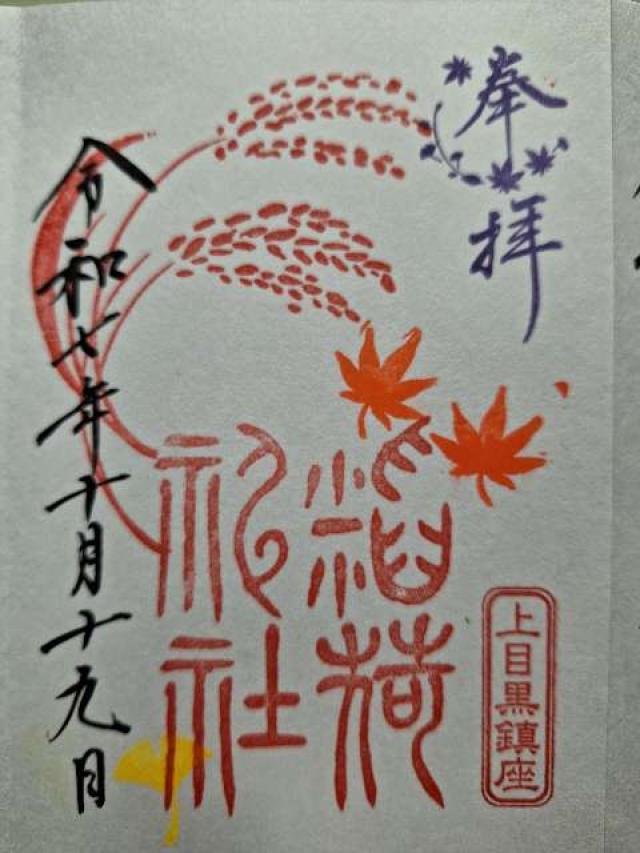 奉拝
上目黒鎮座
稲荷
神社
令和七年十月十九日